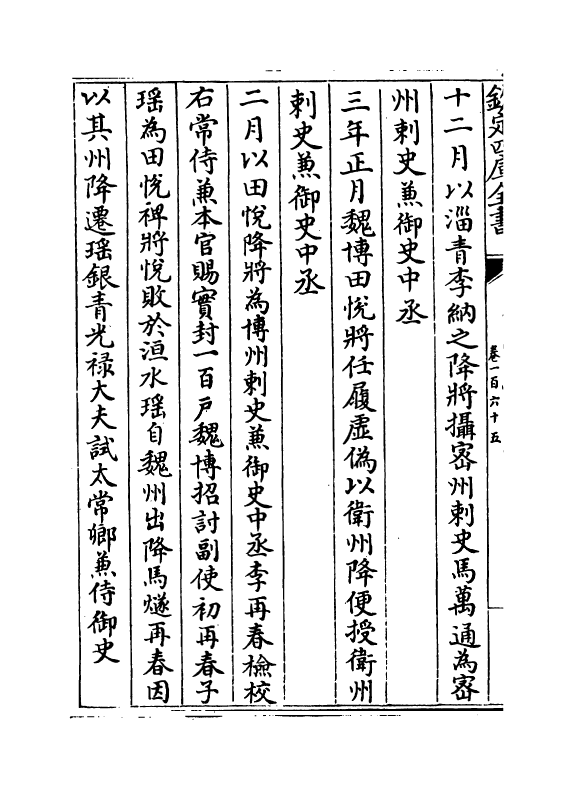 欽定四庫全書
卷一百六十五
十二月以淄青李納之降將攝宻州刺史馬萬通為宻
州刺史兼御史中丞
三年正月魏博田悅將任履虛偽以衛州降便授衛州
刺史兼御史中丞
二月以田悅降將為博州刺史兼御史中丞李再春檢校
右常侍兼本官賜實封一百户魏博招討副使初再春子
瑶為田悅禆將悅敗於洹水瑶自魏州出降馬燧再春因
以其州降遷瑶銀青光禄大夫試太常卿兼侍御史